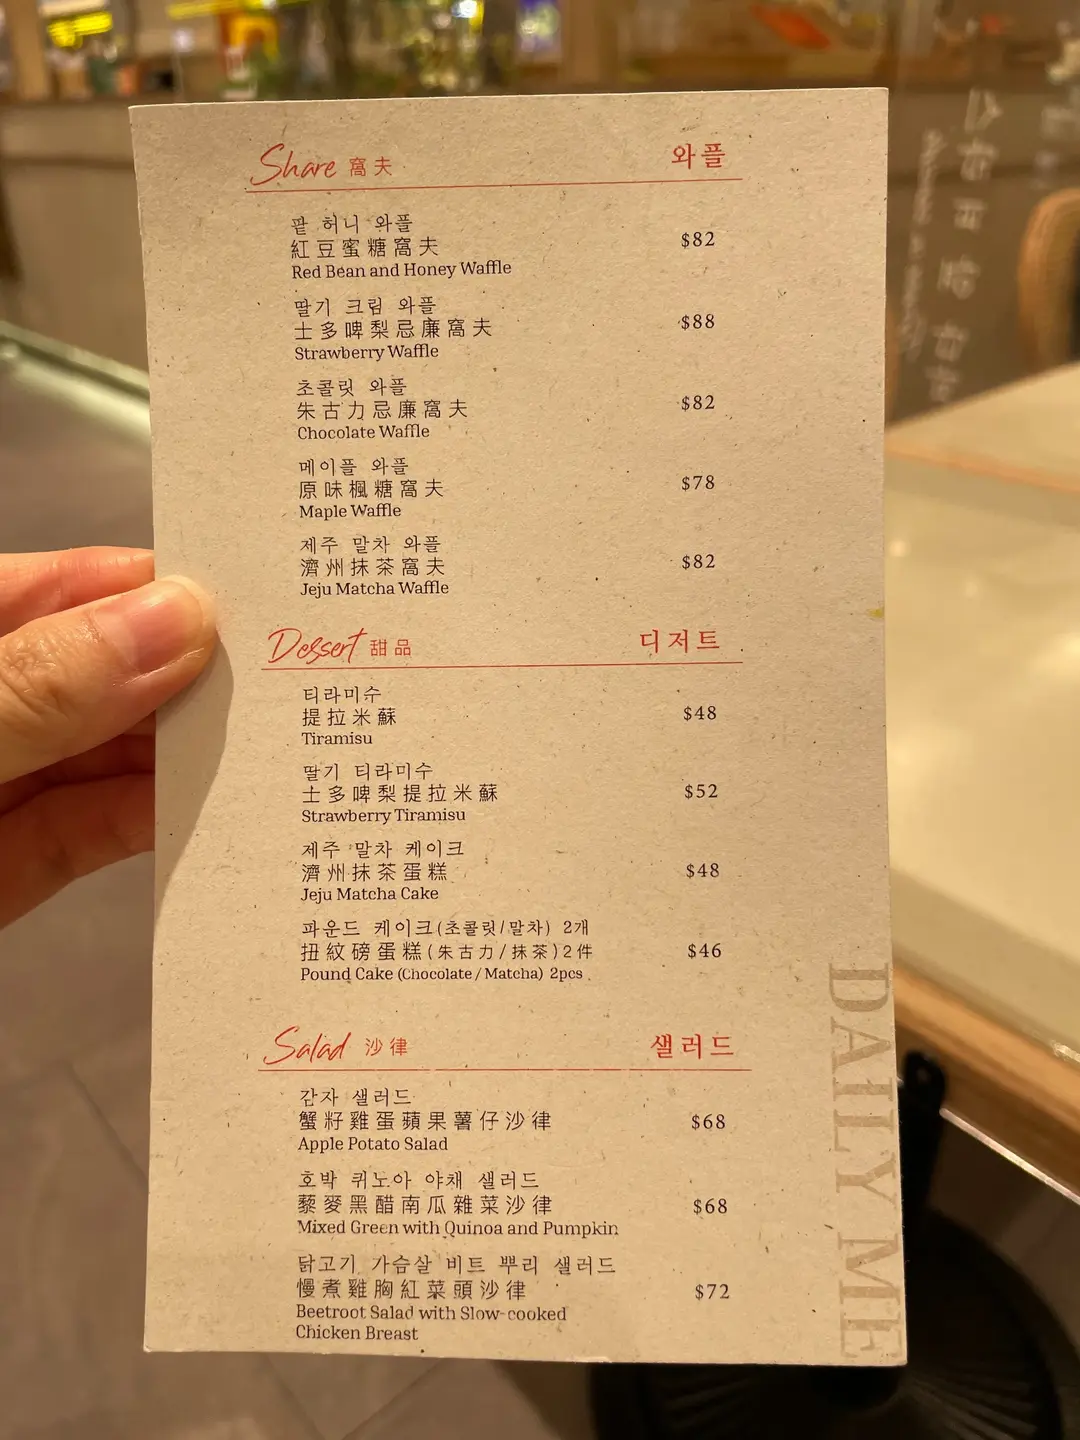 Share 窩夫 와플
팥 허니 와플
紅豆蜜糖窩夫 $82
Red Bean and Honey Waffle
딸기 크림 와플
士多啤梨忌廉窩夫 $88
Strawberry Waffle
초콜릿 와플
朱古力忌廉窩夫 $82
Chocolate Waffle
메이플 와플
原味楓糖窩夫 $78
Maple Waffle
제주 말차 와플
濟州抹茶窩夫 $82
Jeju Matcha Waffle
Dessert 甜品 디저트
티라미수
提拉米蘇 $48
Tiramisu
딸기 티라미수
士多啤梨提拉米蘇 $52
Strawberry Tiramisu
제주 말차 케이크
濟州抹茶蛋糕 $48
Jeju Matcha Cake
파운드 케이크(초콜릿/말차) 2개
扭紋磅蛋糕(朱古力/抹茶)2件 $46
Pound Cake (Chocolate / Matcha) 2pcs
Salad 沙律 샐러드
감자 샐러드
蟹籽雞蛋蘋果薯仔沙律 $68
Apple Potato Salad
호박 퀴노아 야채 샐러드
藜麥黑醋南瓜雜菜沙律 $68
Mixed Green with Quinoa and Pumpkin
닭고기 가슴살 비트 뿌리 샐러드
慢煮雞胸紅菜頭沙律 $72
Beetroot Salad with Slow-cooked
Chicken Breast
DAILY ME